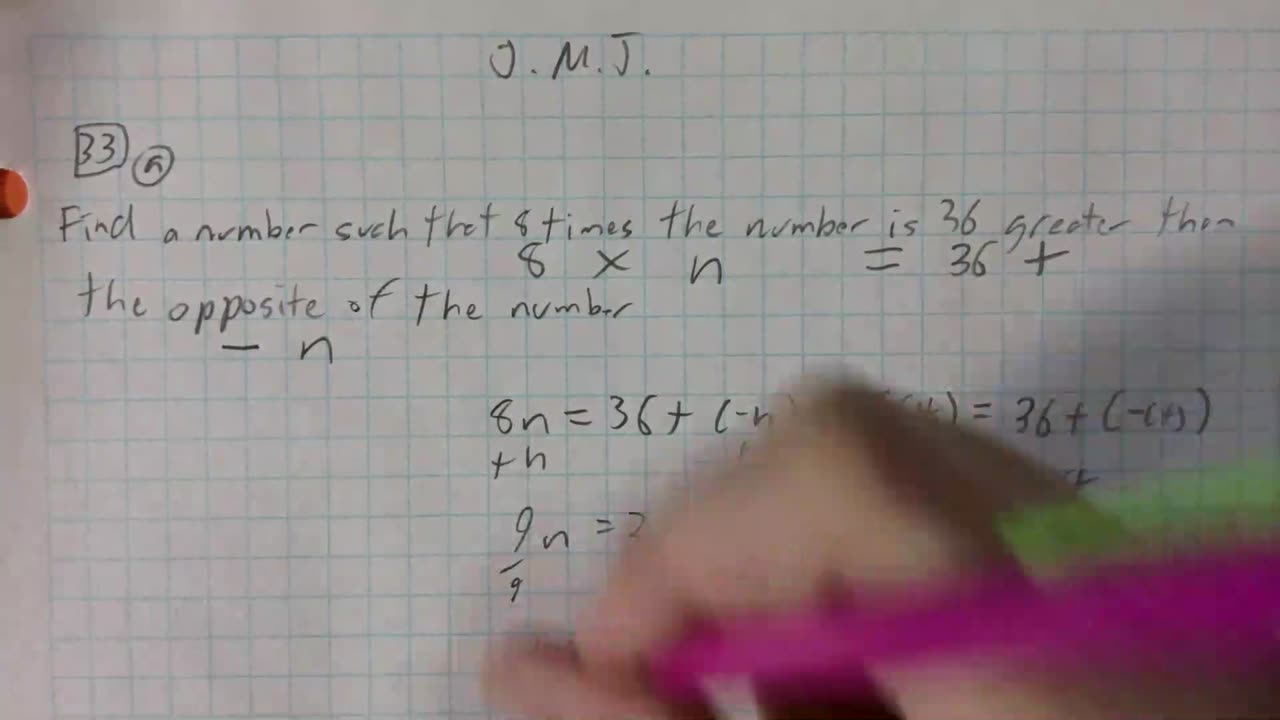 J.M.J.
33 a
Find a number such that 8 times the number is 36 greater than
8 × n = 36 +
the opposite of the number
− n
8n = 36 + (-n) = 36 + (-(4))
+n
9n =
9